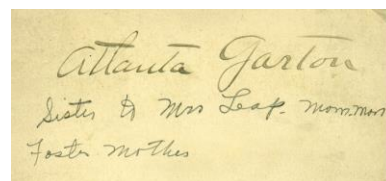 Atlanta Garton
Sister to Mrs Leap. Mom.mom
Foster Mother